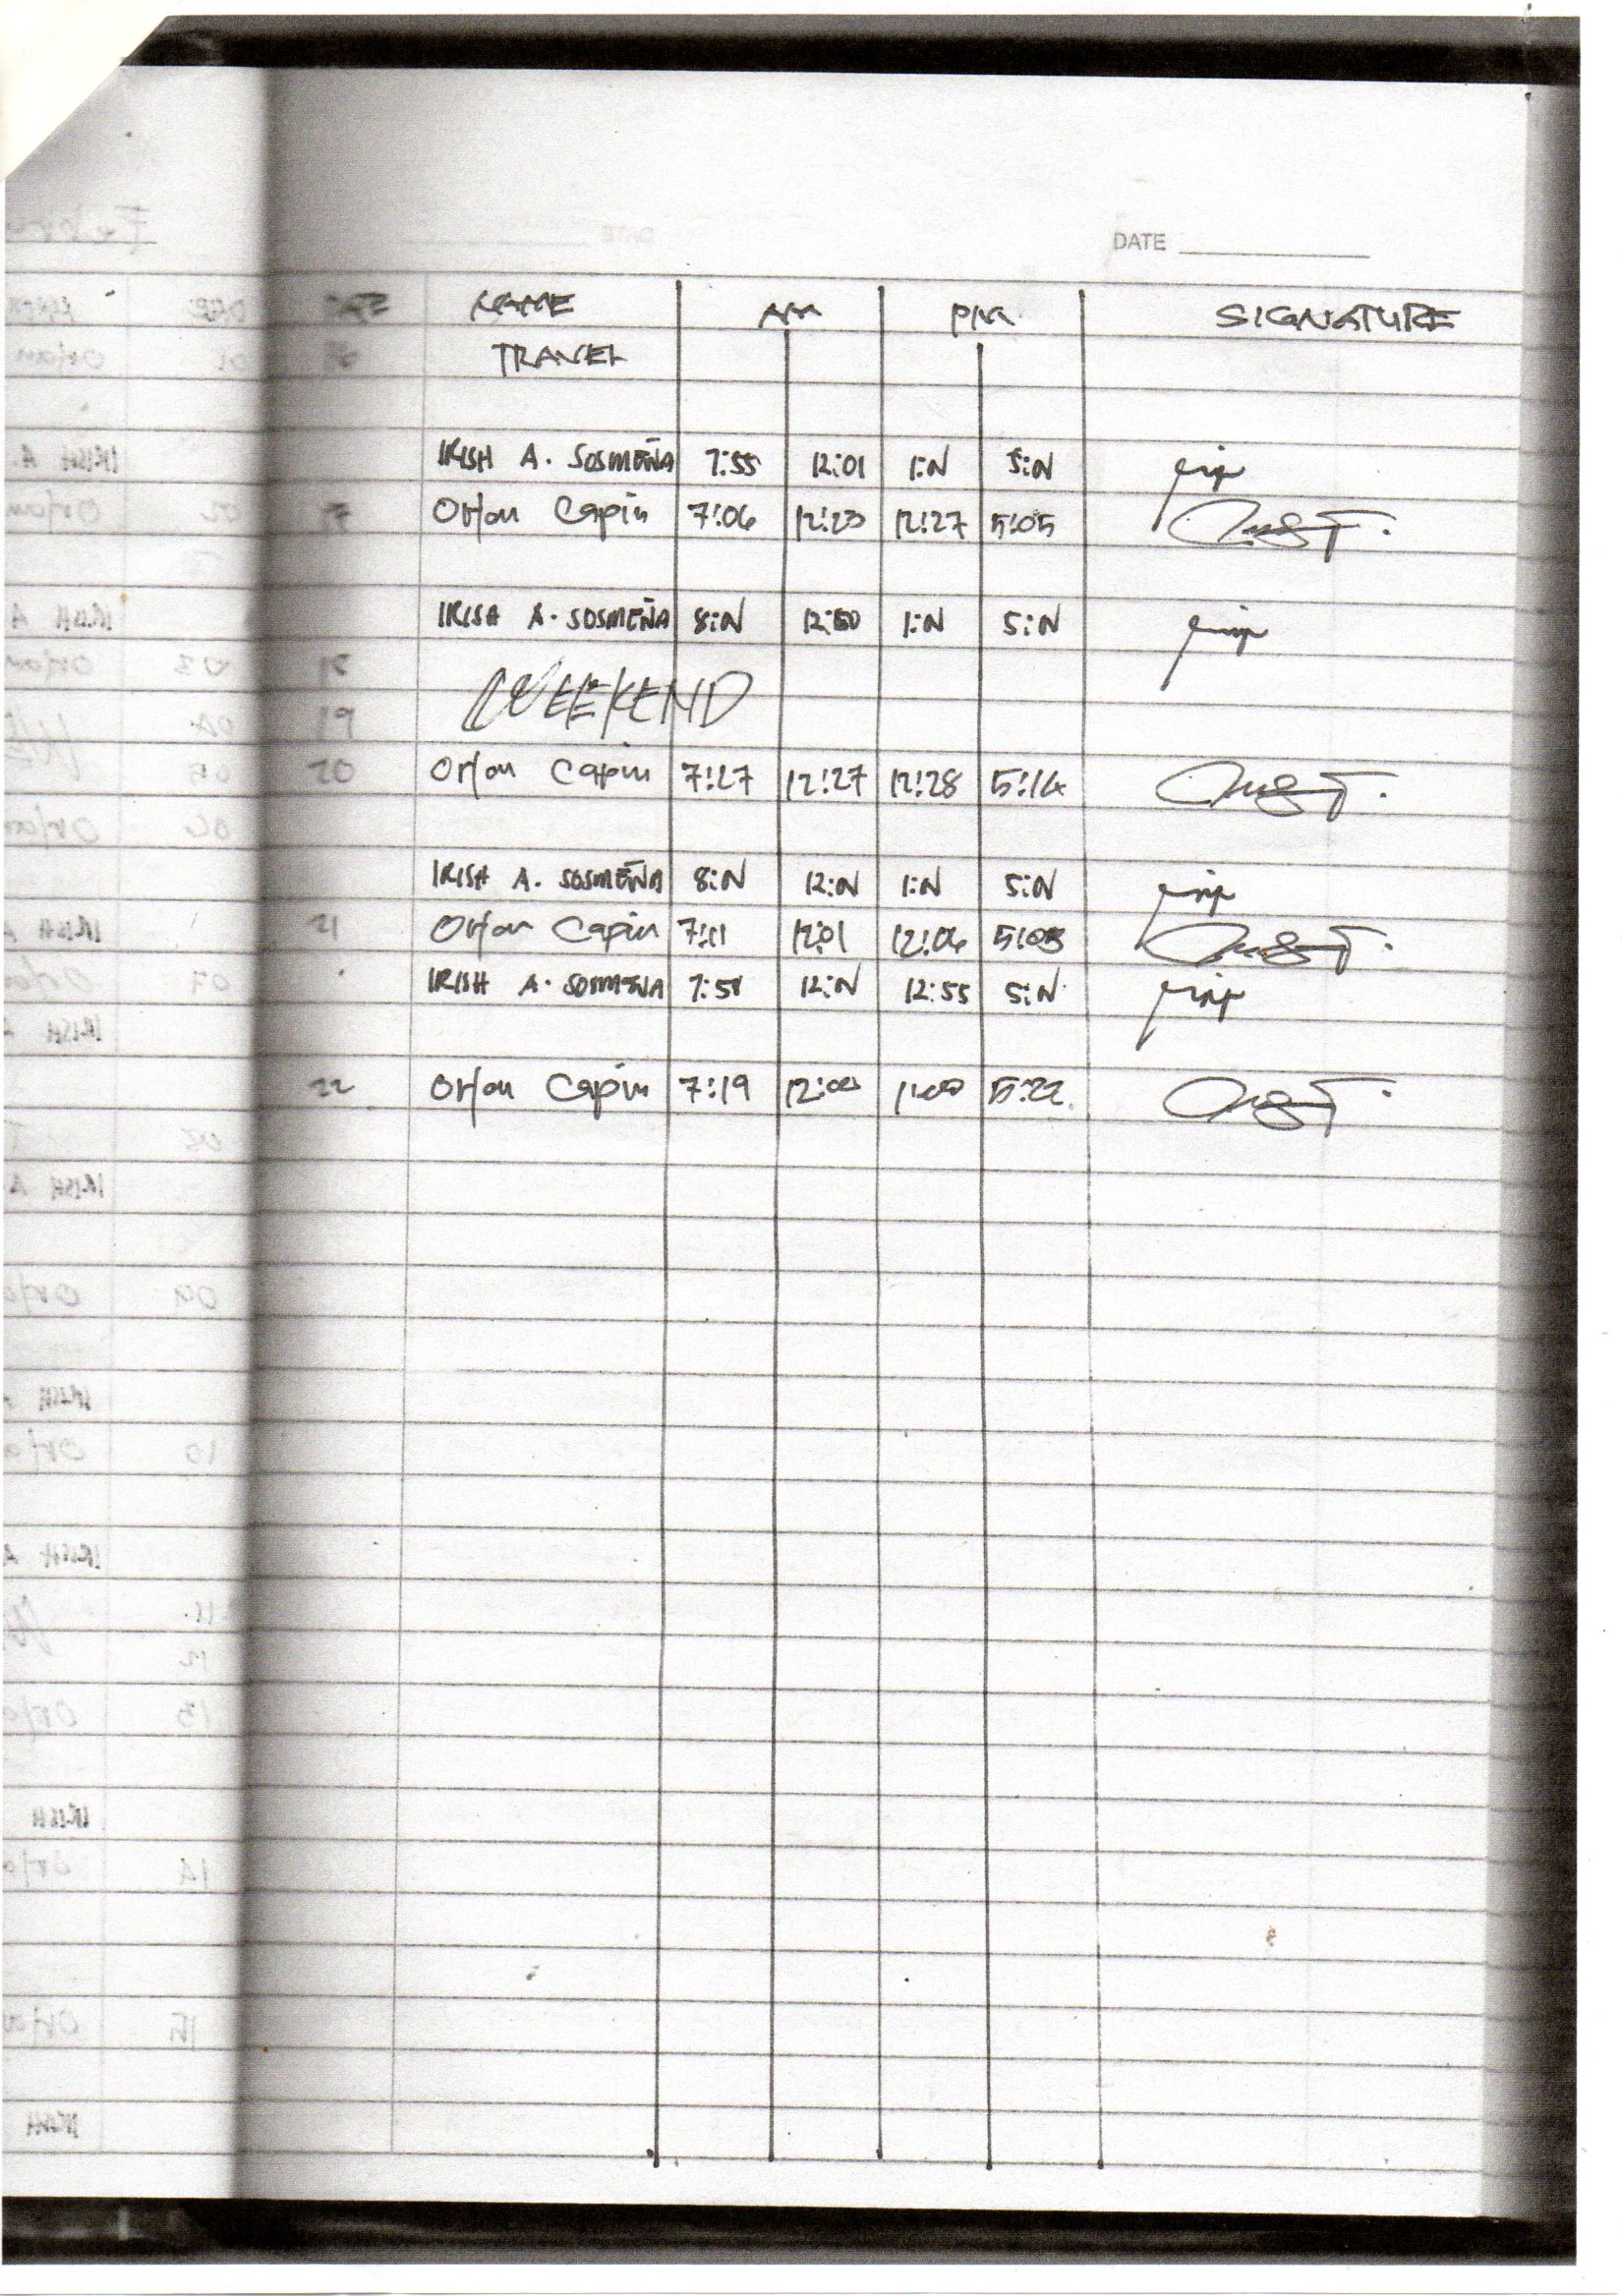 DATE
DATE NAME AM PM SIGNATURE
TRAVEL
IRISH A. SOSMEÑA 7:55 12:01 1:N 5:N
17 Orfan Capin 7:06 12:23 12:27 5:05
IRISH A. SOSMEÑA 8:N 12:50 1:N 5:N
18
WEEKEND
19
20 Orfan Capin 7:27 12:27 12:28 5:14
IRISH A. SOSMEÑA 8:N 12:N 1:N 5:N
21 Orfan Capin 7:11 12:01 12:06 5:03
IRISH A. SOSMEÑA 7:58 12:N 12:55 5:N
22 Orfan Capin 7:19 12:00 1:00 5:22